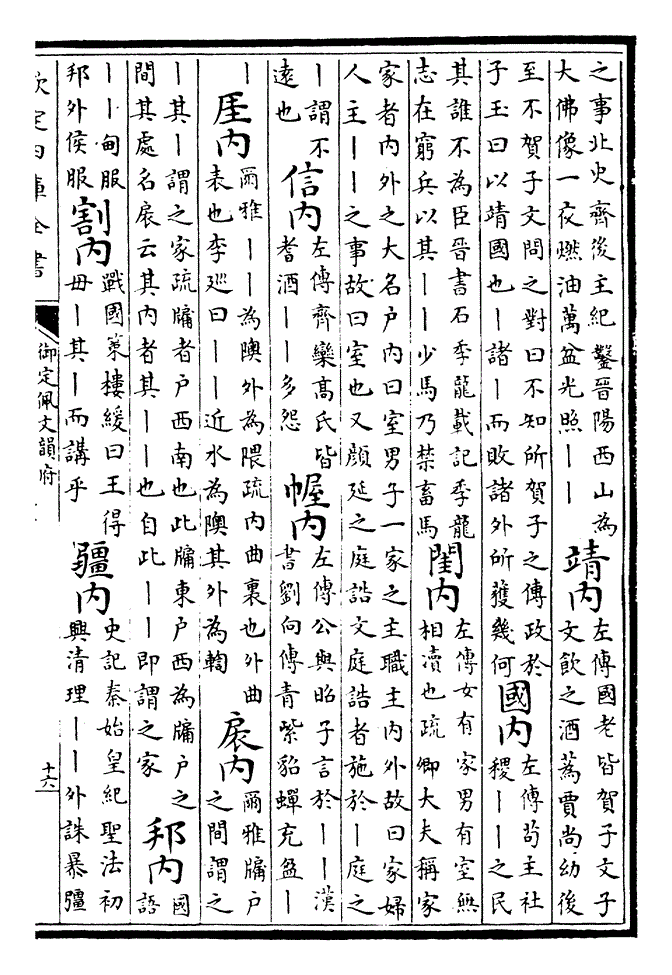 之事北史齊後主紀鑿晉陽西山為
大佛像一夜燃油萬盆光照丨丨
靖内
左傳國老皆賀子文子
文飲之酒蒍賈尚幼後
至不賀子文問之對曰不知所賀子之傳政於
子玉曰以靖國也丨諸丨而敗諸外所獲幾何
國内
左傳茍主社
稷丨丨之民
其誰不為臣晉書石季龍載記季龍
志在窮兵以其丨丨少馬乃禁畜馬
閨内
左傳女有家男有室無
相瀆也疏卿大夫稱家
家者内外之大名户内曰室男子一家之主職主内外故曰家婦
人主丨丨之事故曰室也又顔延之庭誥文庭誥者施於丨庭之
丨謂不
遠也
信内
左傳齊欒高氏皆
耆酒丨丨多怨
幄内
左傳公與昭子言於丨丨漢
書劉向傳青紫貂蟬充盆丨
丨
厓内
爾雅丨丨為隩外為隈疏内曲裏也外曲
表也李廵曰丨丨近水為隩其外為鞫
扆内
爾雅牖户
之間謂之
丨其丨謂之家疏牖者户西南也此牖東户西為牖户之
間其處名扆云其内者其丨丨也自此丨丨即謂之家
邦内
國
語
丨丨甸服
邦外侯服
割内
戰國策樓緩曰王得
毋丨其丨而講乎
疆内
史記秦始皇紀聖法初
興清理丨丨外誅暴彊
欽定四庫全書
御定佩文韻府
十六